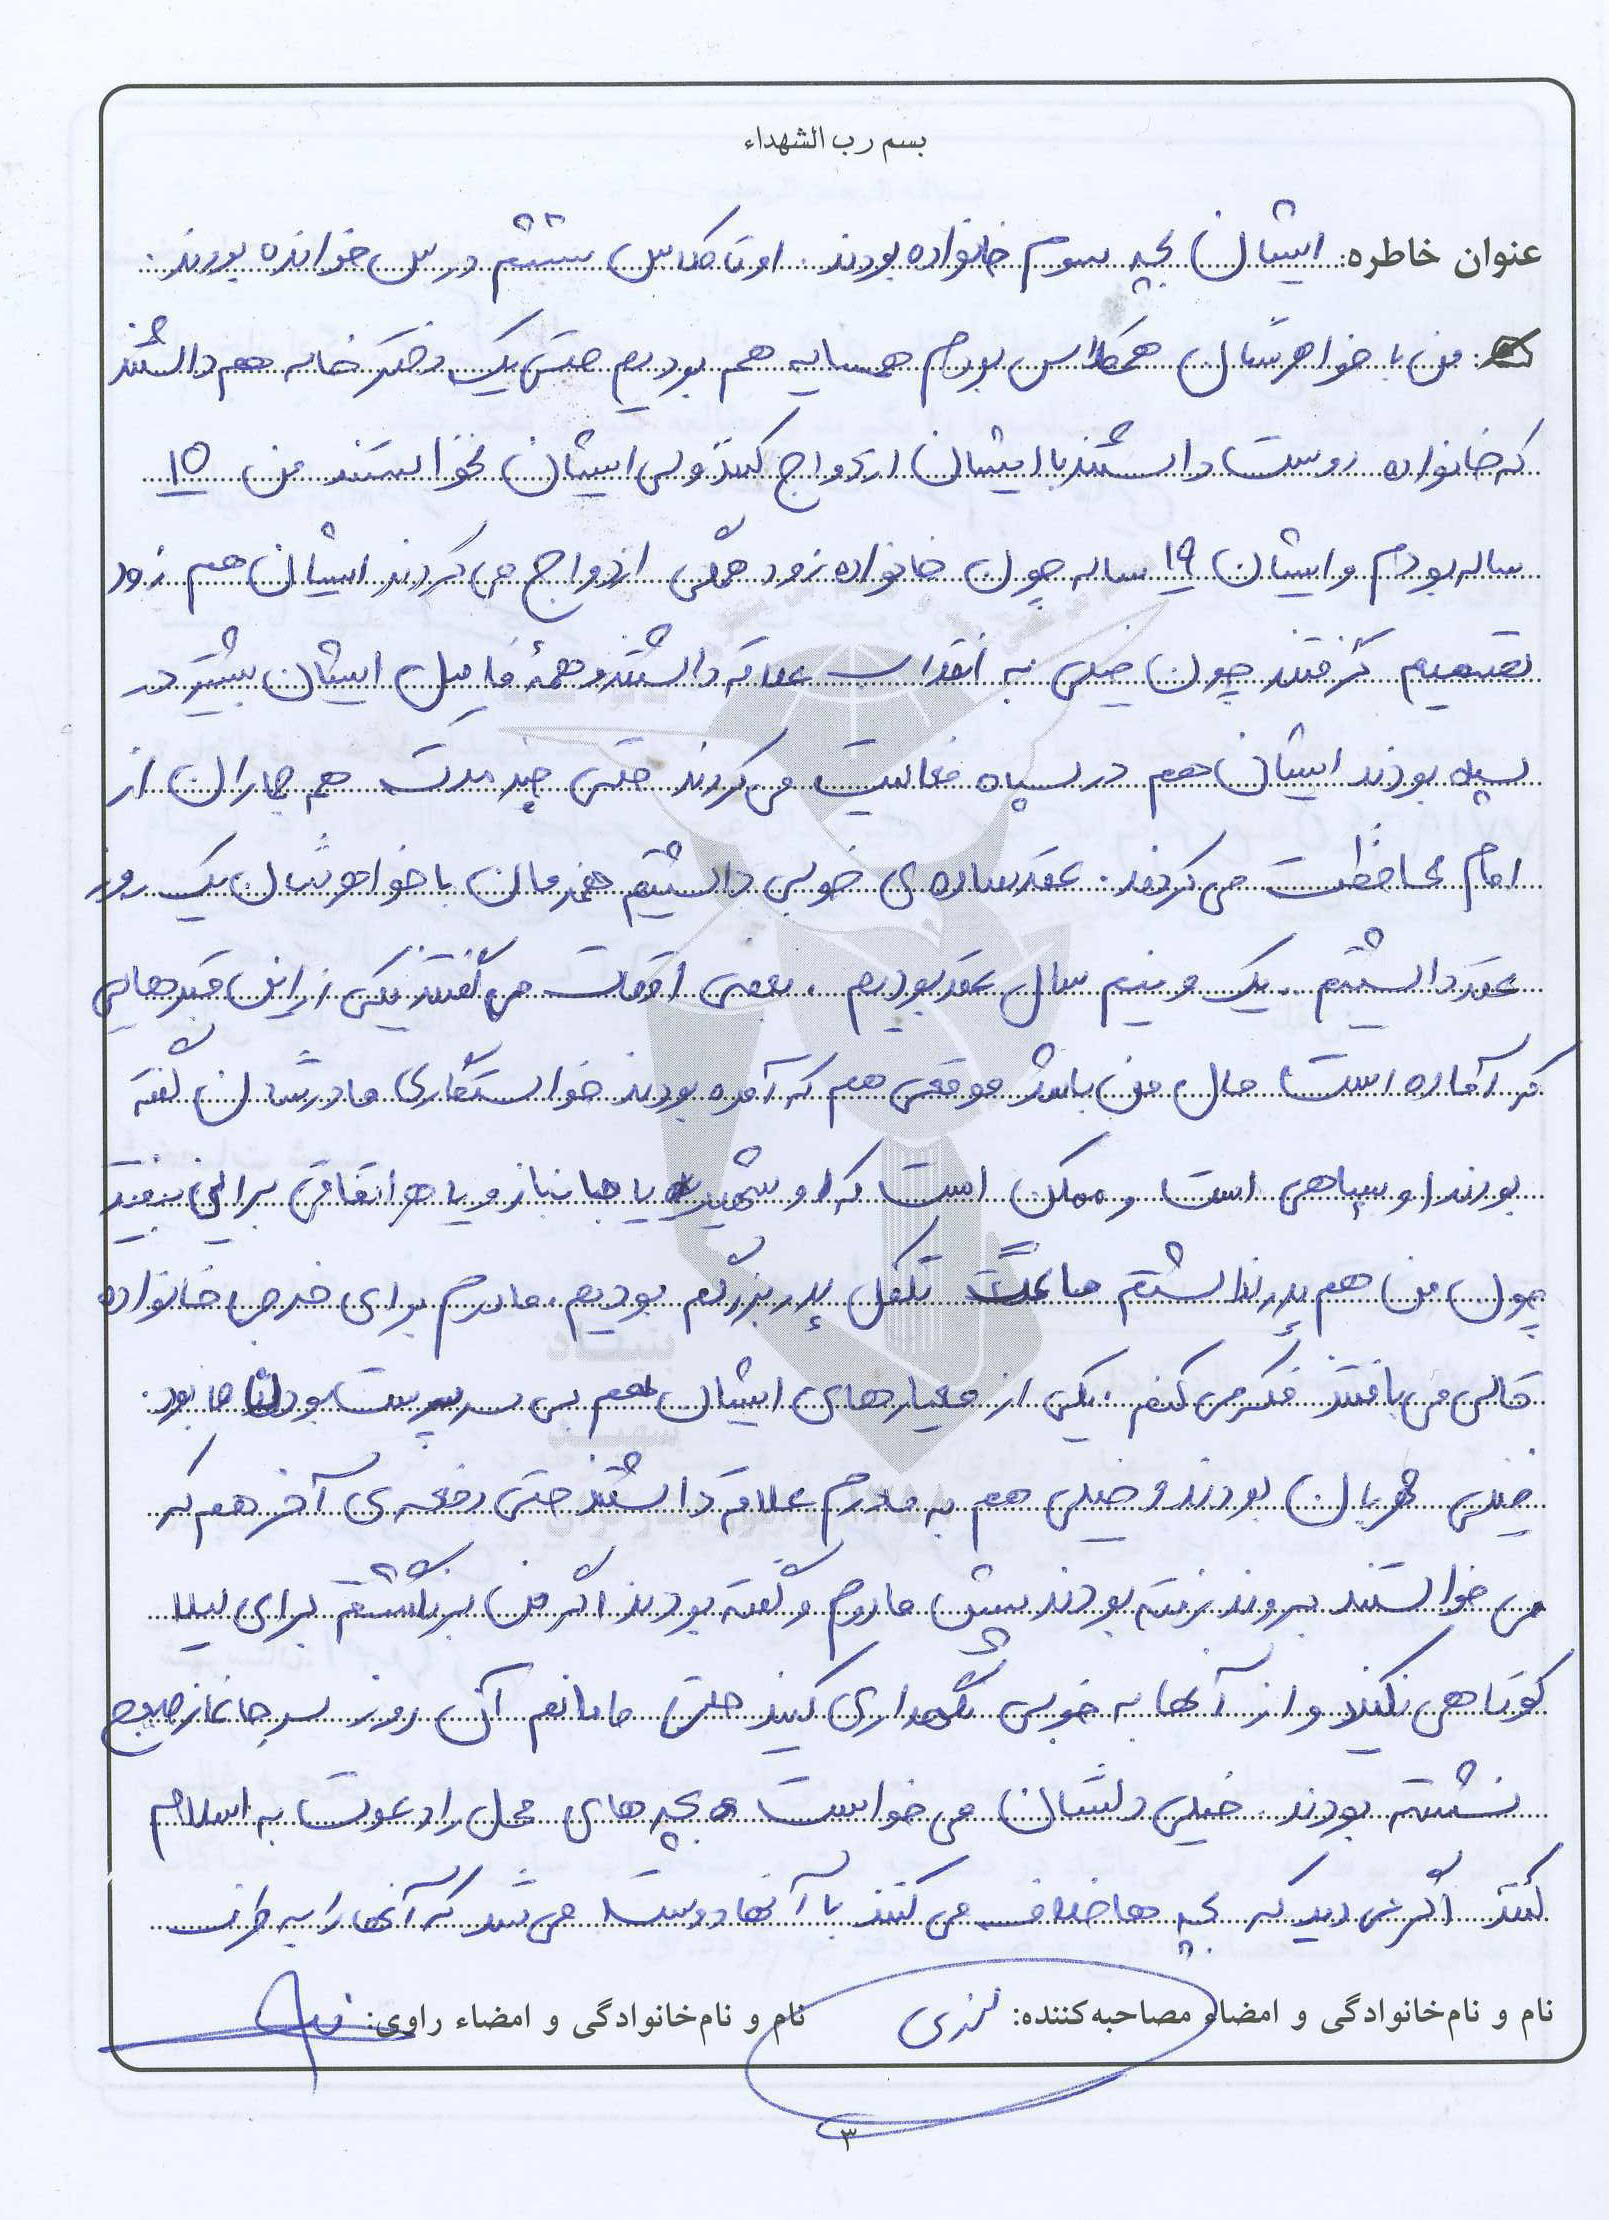 بسم رب الشهداء
عنوان خاطره: ایشان بچه سوم خانواده بودند. او تا کلاس ششم درس خوانده بودند.
من با خواهرشان همکلاس بودم همسایه هم بودیم حتی یک دختر خاله هم داشتند
که خانواده دوست داشتند با ایشان ازدواج کنند ولی ایشان نخواستند من ۱۵
ساله بودم و ایشان ۱۹ ساله چون خانواده زود همگی ازدواج می کردند ایشان هم زود
تصمیم گرفتند چون خیلی به انقلاب علاقه داشتند و همۀ فامیل ایشان بیشتر در
سپاه بودند ایشان هم در سپاه فعالیت می کردند حتی چند مدت هم جماران از
امام محافظت می کردند. عقد ساده ی خوبی داشتیم همزمان با خواهرشان یک روز
عقد داشتیم. یک و نیم سال عقد بودیم. بعضی اوقات می گفتند یکی از این قبرهایی
که آماده است مال من باشد موقعی هم که آمده بودند خواستگاری مادرشان گفته
بودند او سپاهی است و ممکن است که او شهید یا جانباز و یا هر اتفاقی برایش بیفتد
چون من هم پدر نداشتم ما تحت تکفل پدربزرگم بودیم. مادرم برای خرجی خانواده
قالی می بافتند فکر می کنم یکی از معیارهای ایشان هم بی سرپرست بودن ما بود.
خیلی مهربان بودند و خیلی هم به مادرم علاقه داشتند حتی دفعه ی آخر هم که
می خواستند بروند رفته بودند پیش مادرم و گفته بودند اگر من برنگشتم برای لیلا
کوتاهی نکنید و از آنها به خوبی نگهداری کنید حتی مامانم آن روز سر جانماز صبح
نشسته بودند. خیلی دلشان می خواست بچه های محل را دعوت به اسلام
کنند اگر می دید که بچه ها خلاف می کنند با آنها دوست می شد که آنها را به راه راست
نام و نام خانوادگی و امضاء مصاحبه کننده: نام و نام خانوادگی و امضاء راوی:
۳